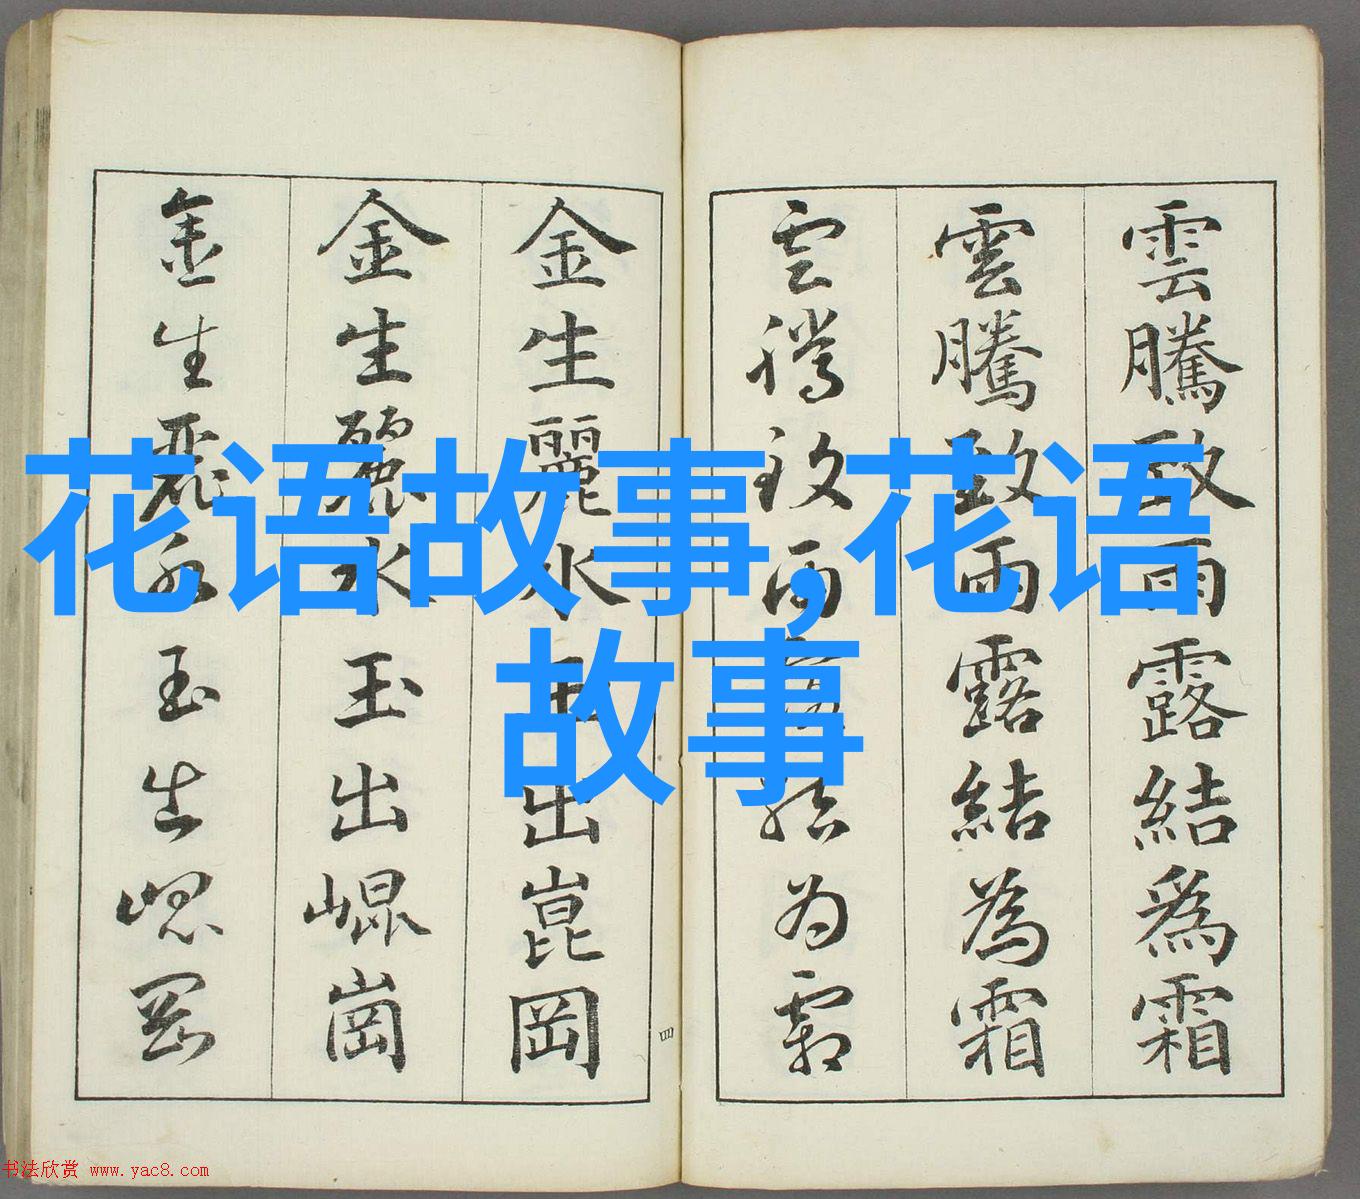 花语故事,花语
故事
雲騰致雨露結爲霜
雲騰致雨露結為霜
雲騰致雨露結为霜
四
金生麗水玉出崑岡
金生麗水玉出崐崗
金生麗水玉出崐岡
书法欣赏 www.yac8.com